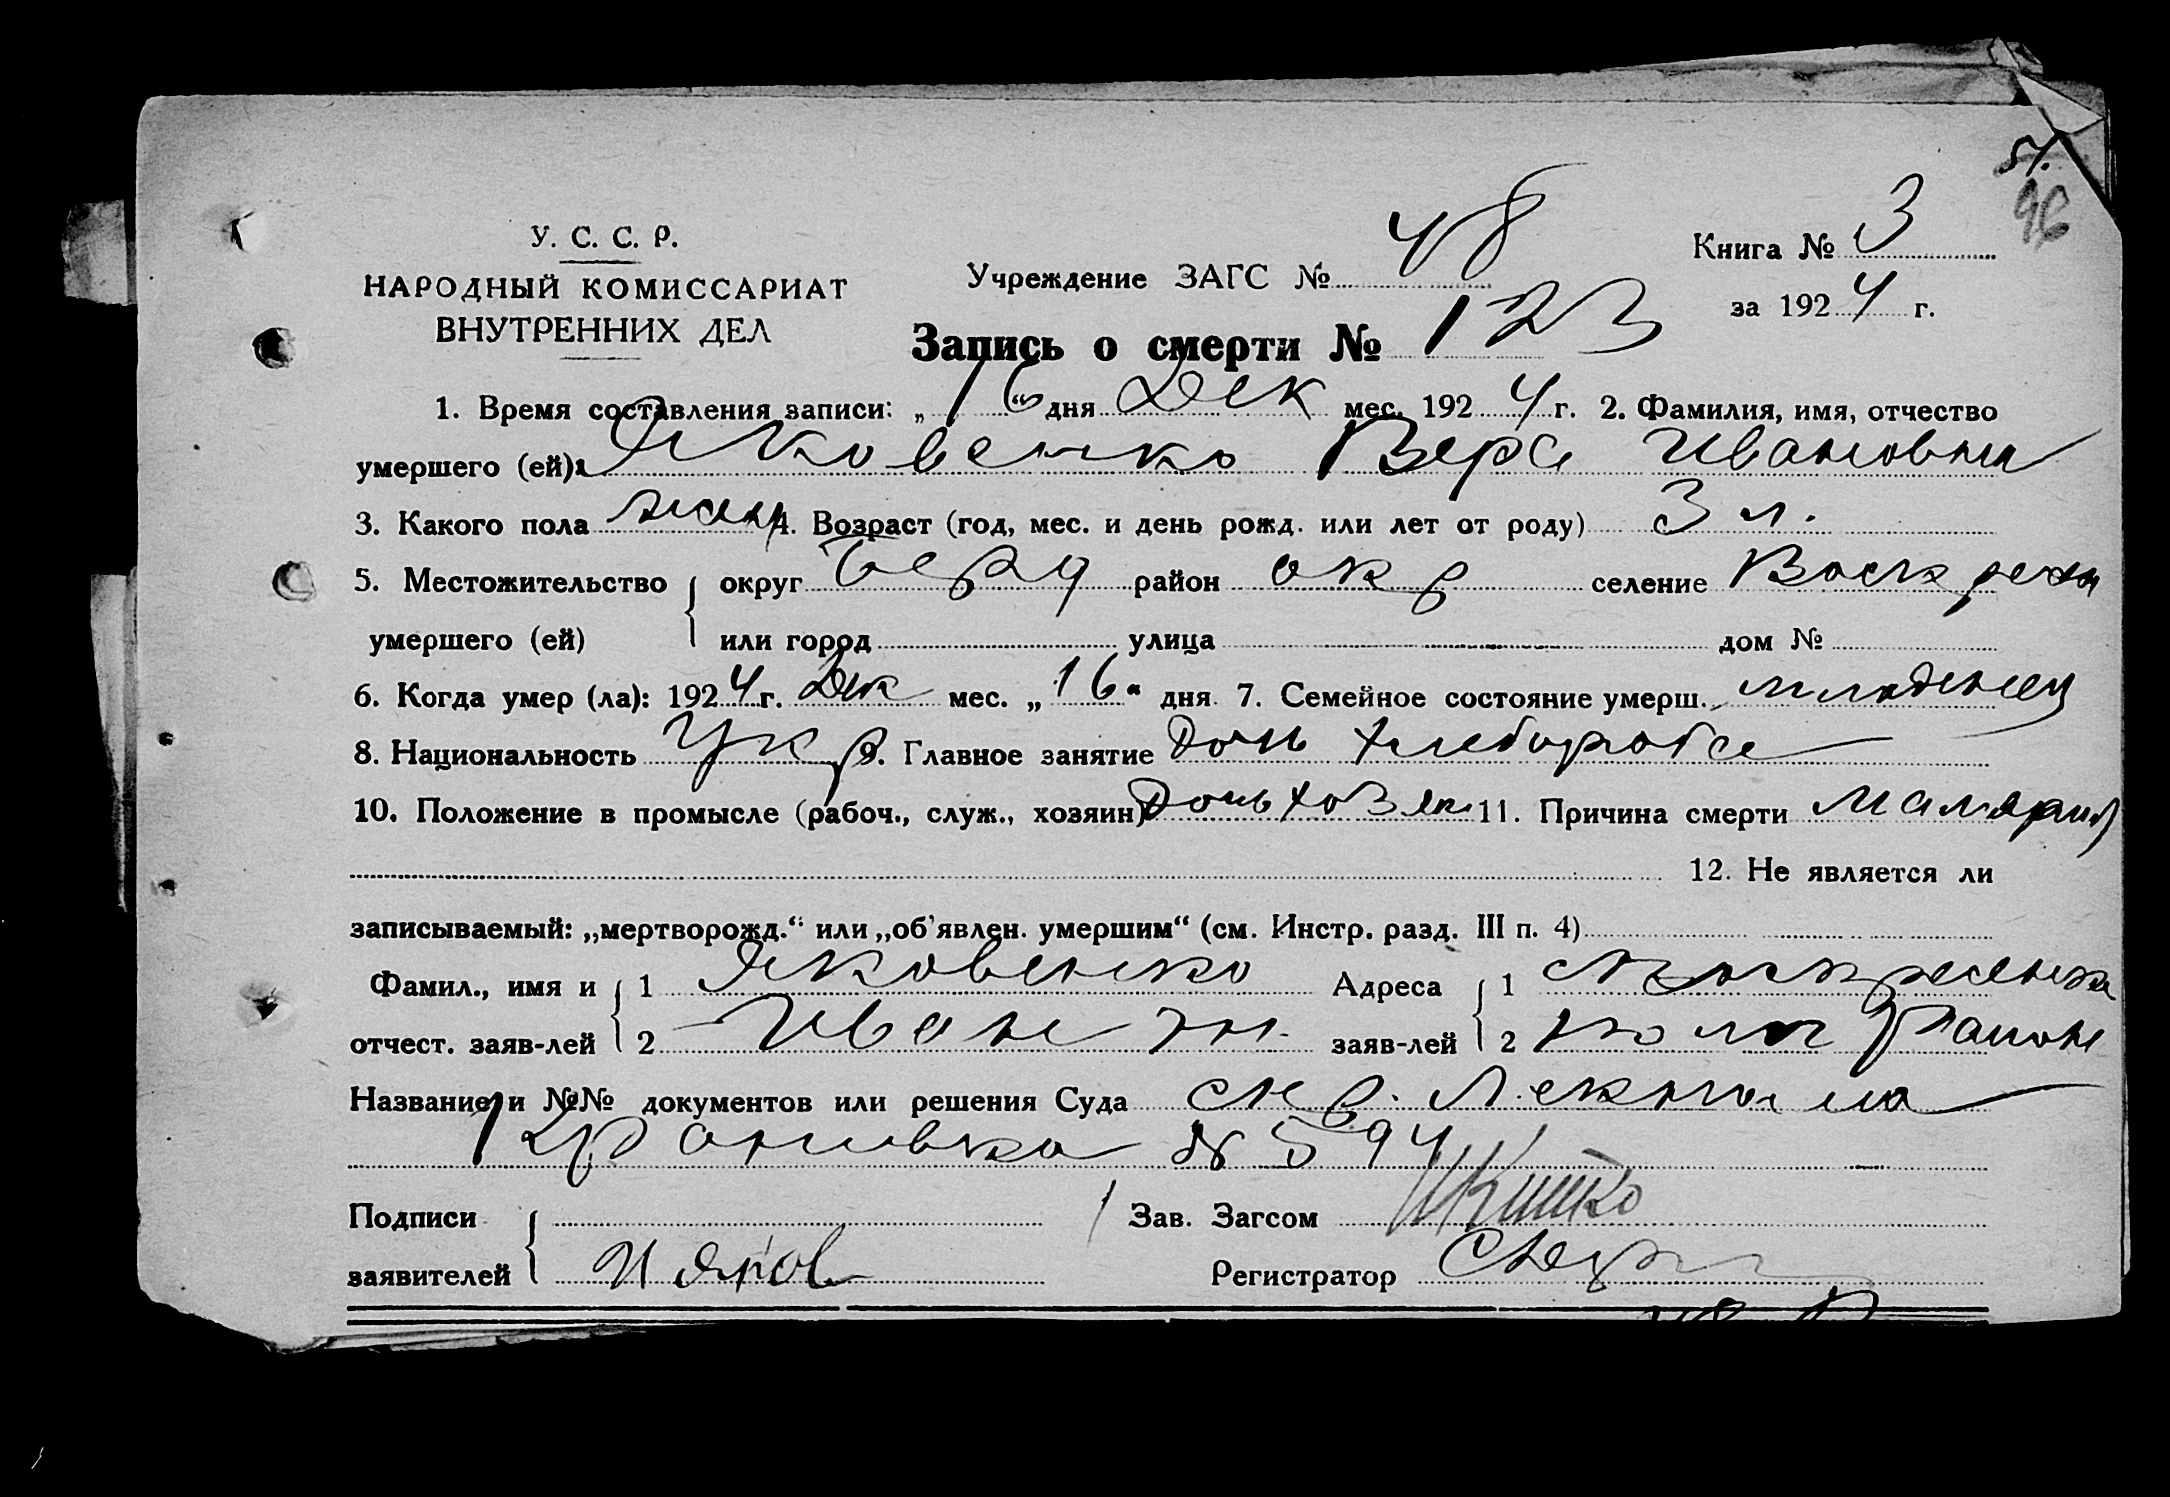 51.
96
У. С. С. Р.
НАРОДНЫЙ КОМИССАРИАТ
ВНУТРЕННИХ ДЕЛ
Учреждение ЗАГС № 48
Книга № 3
за 1924 г.
Запись о смерти № 123
1. Время составления записи: „16“ дня Дек мес. 1924 г. 2. Фамилия, имя, отчество
умершего (ей) Яковенко Вера Ивановна
3. Какого пола жен 4. Возраст (год, мес. и день рожд. или лет от роду) 3 л.
5. Местожительство округ Берд район окр селение
умершего (ей) или город улица дом №
6. Когда умер (ла): 1924 г. Дек мес. „16“ дня 7. Семейное состояние умерш. младенец
8. Национальность Укр 9. Главное занятие Дочь хлебороба
10. Положение в промысле (рабоч., служ., хозяин) Дочь хозяи 11. Причина смерти Малярия
12. Не является ли
записываемый: „мертворожд.“ или „об'явлен. умершим“ (см. Инстр. разд. III п. 4)
Фамил., имя и 1 Яковенко Адреса 1
отчест. заяв-лей 2 Иван заяв-лей 2 района
Название и №№ документов или решения Суда спр.
№ 594
Подписи Зав. Загсом
заявителей И Яков Регистратор